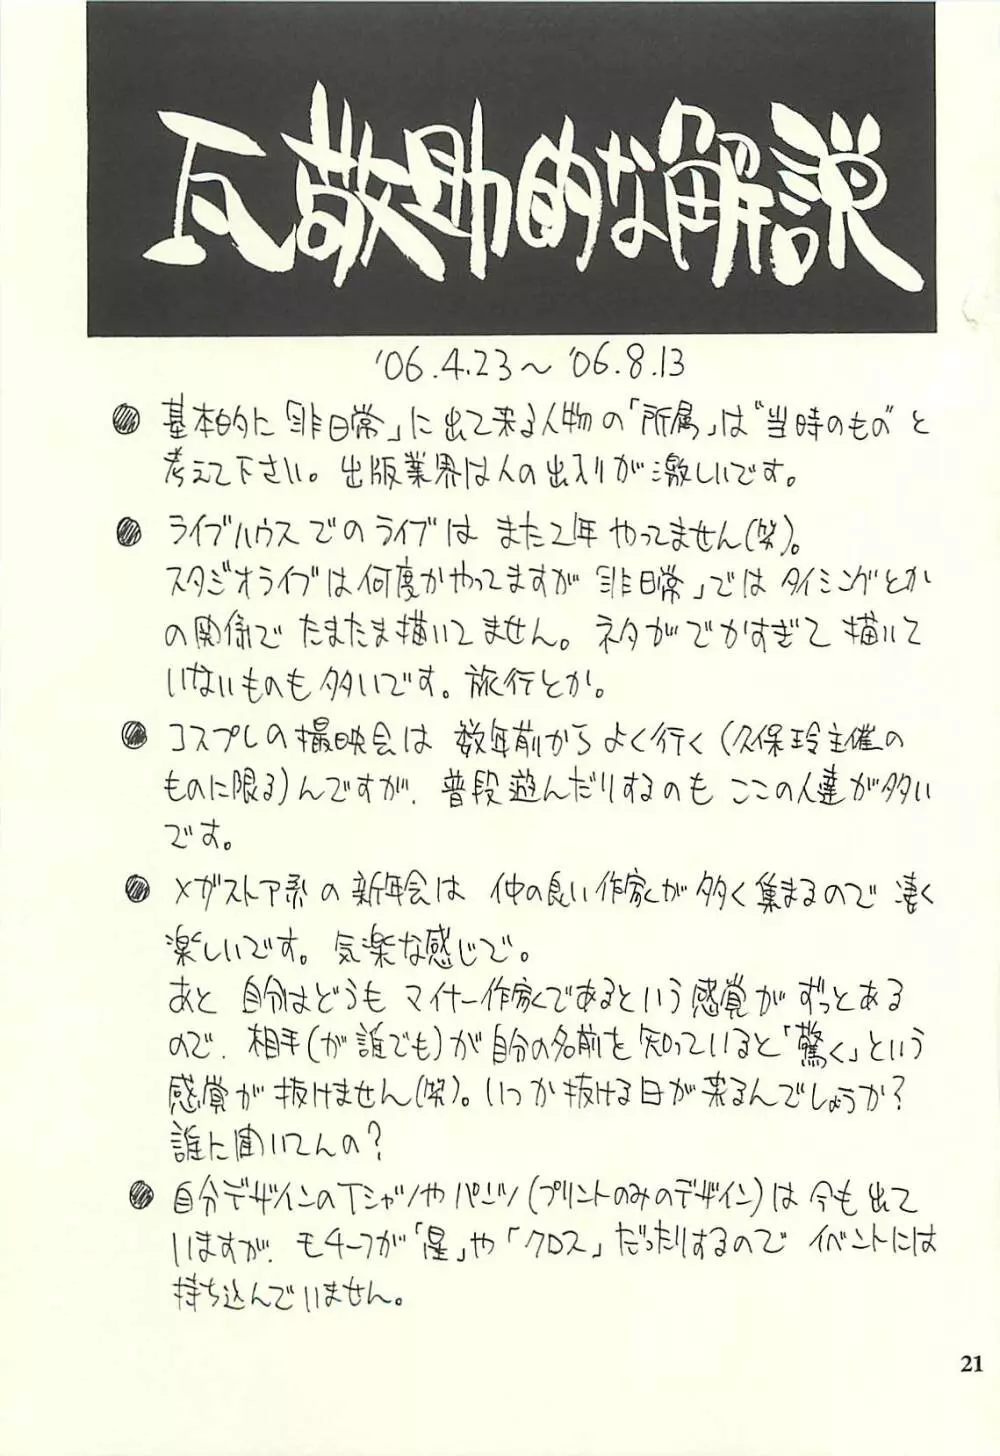 瓦敬助的な解説
'06.4.23〜'06.8.13
● 基本的に「非日常」に出て来る人物の「所属」は"当時のもの"と
考えて下さい。出版業界は人の出入りが激しいです。
● ライブハウスでのライブは また2年やってません(笑)。
スタジオライブは何度かやってますが「非日常」ではタイミングとか
の関係で たまたま描いてません。ネタがでかすぎて描いて
いないものも多いです。旅行とか。
● コスプレの撮映会は 数年前からよく行く(久保玲主催の
ものに限る)んですが、普段遊んだりするのも ここの人達が多い
です。
● メガストア系の新年会は 仲の良い作家が多く集まるので 凄く
楽しいです。気楽な感じで。
あと 自分はどうも マイナー作家であるという感覚が ずっとある
ので、相手(が誰でも)が自分の名前を知っていると「驚く」という
感覚が 抜けません(笑)。いつか抜ける日が来るんでしょうか?
誰に聞いてんの?
● 自分デザインのTシャツやパンツ(プリントのみのデザイン)は 今も出て
いますが、モチーフが「星」や「クロス」だったりするので イベントには
持ち込んでいません。
21